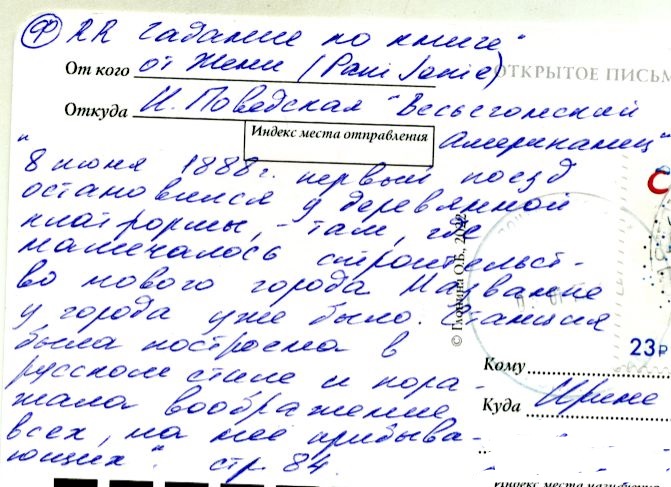 Ф RR Гадание по книге"
От кого от Жени (Pani Janie)
ОТКРЫТОЕ ПИСЬМ
Откуда И. Поведская "Весьегонский
Индекс места отправления
Американец"
"8 июня 1888г. первый поезд
остановился у деревянной
платформы, - там, где
намечалось строительст-
во нового города. Название
у города уже было. Станция
была построена в
русском стиле и пора-
жала воображение
всех, на нее прибыва-
ющих". стр. 84
23₽
Кому
Куда Ирине